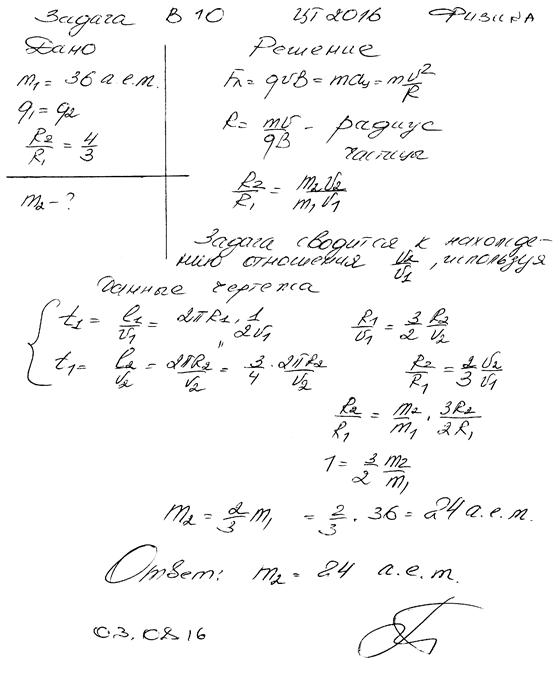 Задача В 10 ЦТ 2016 Физика
Дано
m₁ = 36 а.е.м.
q₁ = q₂
R₂/R₁ = 4/3
m₂ - ?
Решение
Fл = qvB = maц = m v²/R
R = mv/qB - радиус
частицы
R₂/R₁ = m₂v₂/m₁v₁
Задача сводится к нахожде-
нию отношения v₂/v₁, используя
данные чертежа
t₁ = l₁/v₁ = 2πR₁ · 1/2v₁
t₁ = l₂/v₂ = 2πR₂/v₂ = 3/4 · 2πR₂/v₂
R₁/v₁ = 3/2 R₂/v₂
R₂/R₁ = 2/3 v₂/v₁
R₂/R₁ = m₂/m₁ · 3R₂/2R₁
1 = 3/2 m₂/m₁
m₂ = 2/3 m₁ = 2/3 · 36 = 24 а.е.м.
Ответ: m₂ = 24 а.е.м.
03.0816